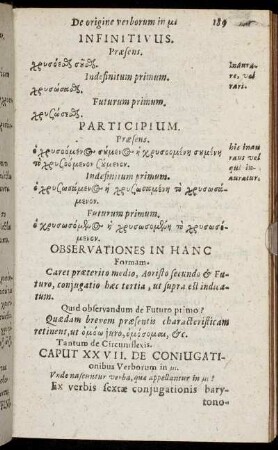 De origine verborum in μι 189
INFINITIVUS.
Præsens.
χρυσόεσθ σῦσθ. Inaura-
Indefinitum primum. re. vel
χρυσώσασθ. rari.
Futurum primum.
χρυζώσεσθ.
PARTICIPIUM.
Præsens. hic inau
ὁ χρυσοόμενος σύμενος ἡ χρυσοομένη συμένη raus vel
τὸ χρυζοόμενον ζύμενον. qui in-
Indefinitum primum. auratur.
ὁ χρυζωσάμενος ἡ χρυζωσαμένη τὸ χρυσωσά-
μενον.
Futurum primum.
ὁ χρυσωσόμενος ἡ χρυσωσομένη τὸ χρυσωσό-
μενον.
OBSERVATIONES IN HANC
Formam.
Caret præterito medio, Aoristo secundo & Fu-
turo, conjugatio hæc tertia, ut supra est indica-
tum.
Quid observandum de Futuro primo?
Quædam brevem præsentis characteristicam
retinent, ut ὀμόω ἀρόω, ὀμόσομαι, &c.
Tantum de Circumflexis.
CAPUT XXVII. DE CONIUGATI-
onibus Verborum in μι.
Unde nascuntur verba, quæ appellantur in μι?
Ex verbis sextæ conjugationis bary-
tono-